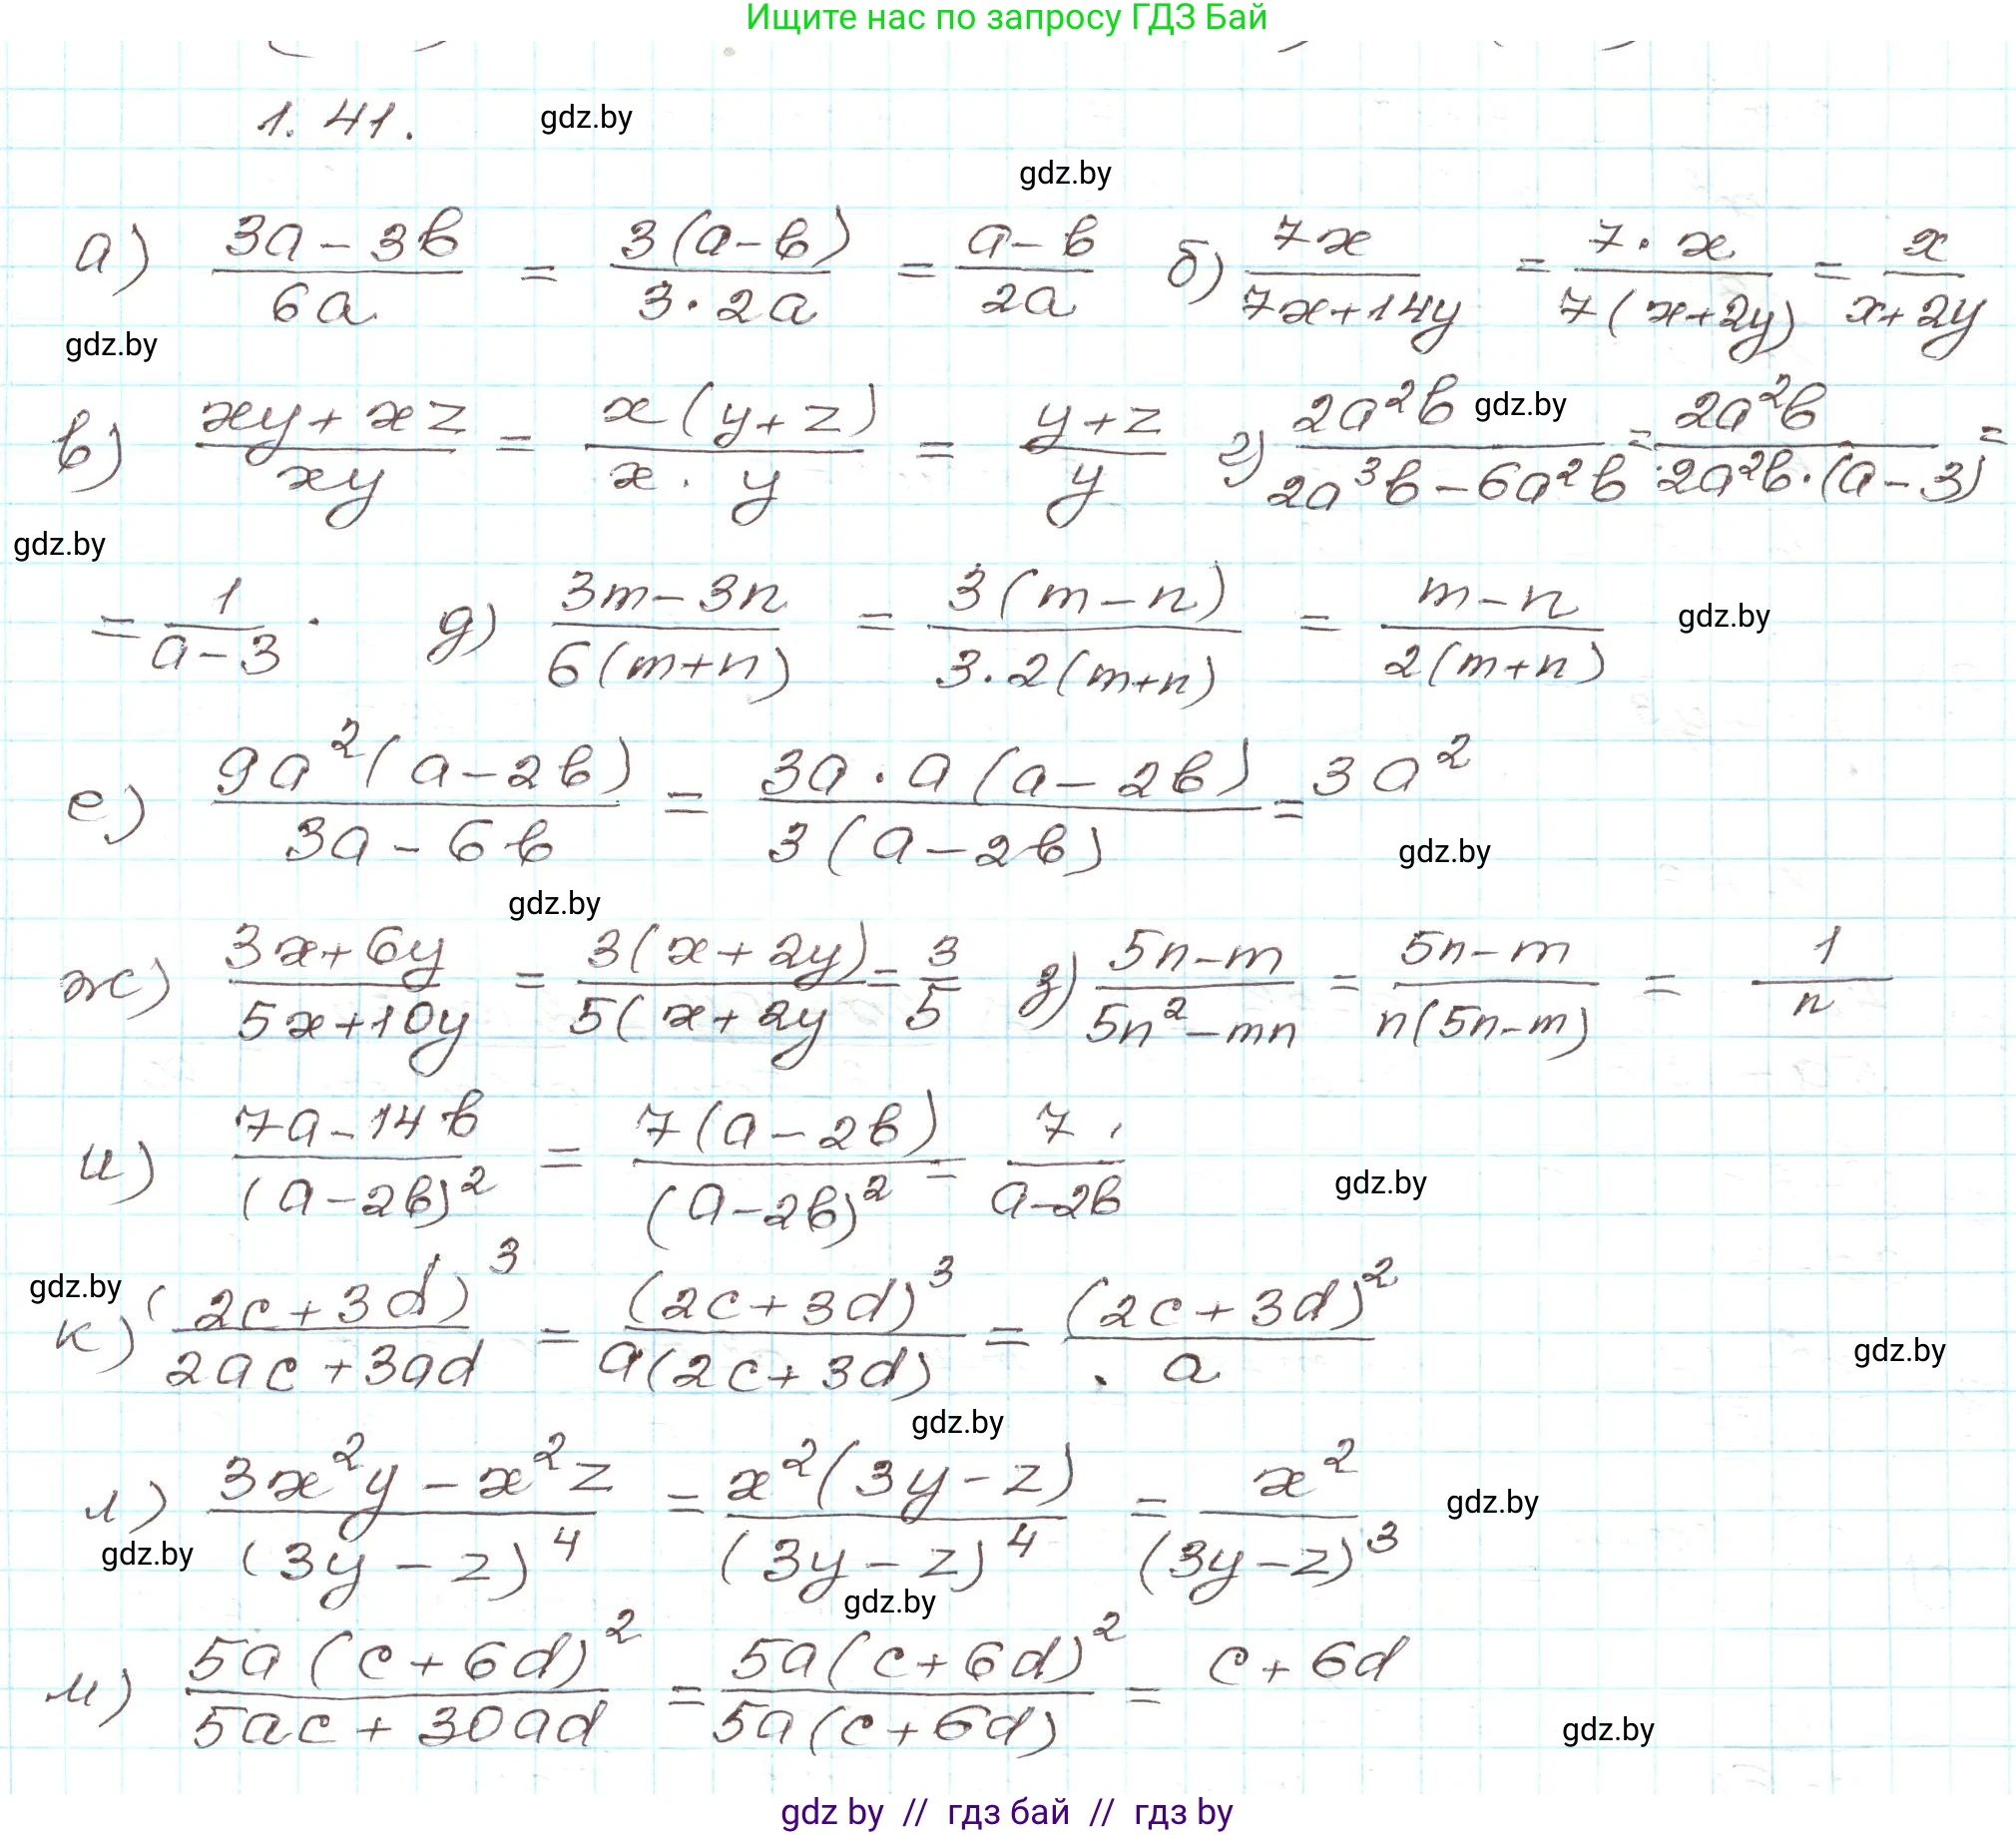 Ищите нас по запросу ГДЗ Бай
1.41.
gdz.by
gdz.by
а) (3a-3b)/(6a) = (3(a-b))/(3·2a) = (a-b)/(2a) б) (7x)/(7x+14y) = (7·x)/(7(x+2y)) = x/(x+2y)
gdz.by
в) (xy+xz)/(xy) = (x(y+z))/(x·y) = (y+z)/y г) (2a²b)/(2a³b-6a²b) = (2a²b)/(2a²b·(a-3)) =
gdz.by
gdz.by
= 1/(a-3). д) (3m-3n)/(6(m+n)) = (3(m-n))/(3·2(m+n)) = (m-n)/(2(m+n))
gdz.by
е) (9a²(a-2b))/(3a-6b) = (3a·a(a-2b))/(3(a-2b)) = 3a²
gdz.by
gdz.by
ж) (3x+6y)/(5x+10y) = (3(x+2y))/(5(x+2y) = 3/5 з) (5n-m)/(5n²-mn) = (5n-m)/(n(5n-m)) = 1/n
и) (7a-14b)/((a-2b)²) = (7(a-2b))/((a-2b)²) = 7/(a-2b)
gdz.by
gdz.by
к) ((2c+3d)³)/(2ac+3ad) = ((2c+3d)³)/(a(2c+3d)) = ((2c+3d)²)/a
gdz.by
gdz.by
л) (3x²y-x²z)/((3y-z)⁴) = (x²(3y-z))/((3y-z)⁴) = x²/((3y-z)³)
gdz.by
gdz.by
gdz.by
м) (5a(c+6d)²)/(5ac+30ad) = (5a(c+6d)²)/(5a(c+6d)) = c+6d
gdz.by
gdz by // гдз бай // гдз by